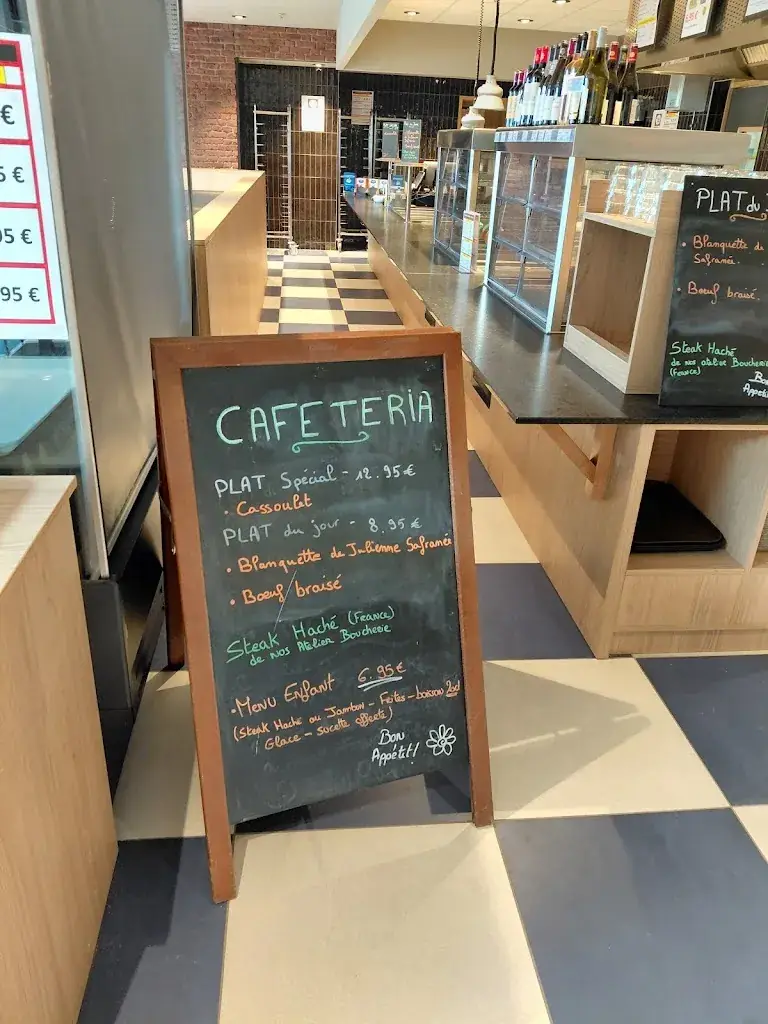 CAFETERIA
PLAT Spécial - 12.95€
• Cassoulet
PLAT du jour - 8.95€
• Blanquette de Julienne Safranée
• Boeuf braisé
Steak Haché (France)
de nos Atelier Boucherie
• Menu Enfant 6.95€
(Steak Haché ou Jambon - Frites - boisson 20cl
Glace - sucette offerte)
Bon
Appétit!
PLAT du
• Blanquette de
Safranée
• Boeuf braisé
Steak Haché
de nos atelier Boucherie
(France)
Bon
Appétit
€
5 €
95 €
95 €